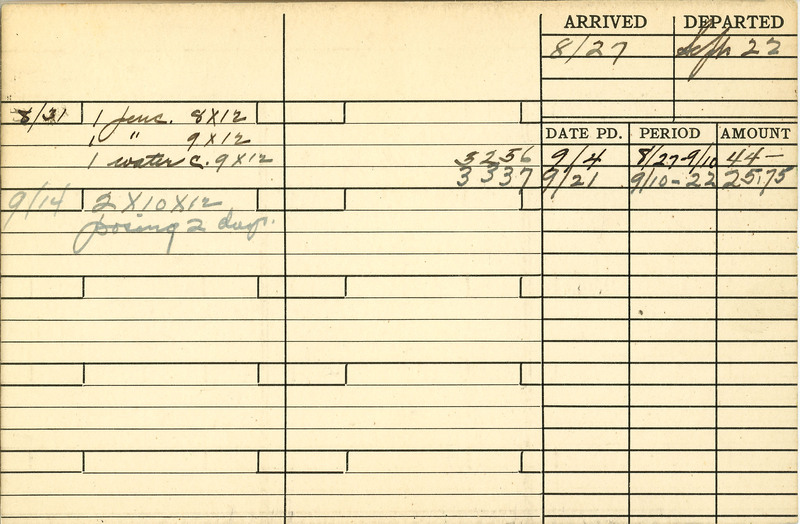 ARRIVED DEPARTED
8/27 Sept 22
8/31 1 penc. 8X12
1 " 9X12
DATE PD. PERIOD AMOUNT
1 water c. 9X12 3256 9/4 8/27-9/10 44—
3337 9/21 9/10-22 25.75
9/14 2 X10X12
posing 2 days.